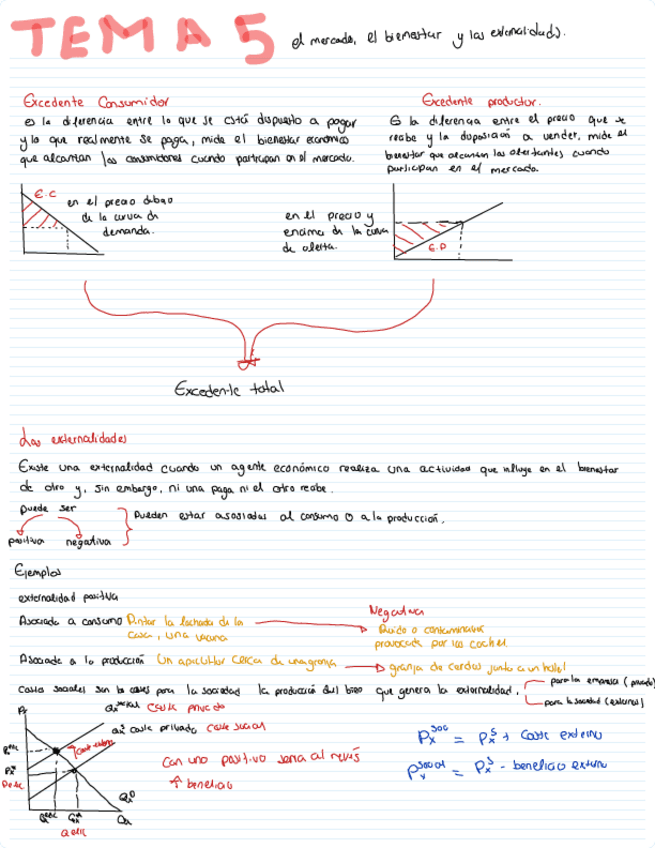 TEMA 5 el mercado, el bienestar y las externalidades.
Excedente Consumidor
es la diferencia entre lo que se está dispuesto a pagar
y lo que realmente se paga, mide el bienestar económico
que alcanzan los consumidores cuando participan en el mercado.
Excedente productor.
Es la diferencia entre el precio que se
recibe y la disposición a vender, mide el
bienestar que alcanzan los ofertantes cuando
participan en el mercado.
E.C
en el precio debajo
de la curva de
demanda.
en el precio y
encima de la curva
de oferta.
E.P
Excedente total
Las externalidades
Existe una externalidad cuando un agente económico realiza una actividad que influye en el bienestar
de otro y, sin embargo, ni una paga ni el otro recibe.
puede ser
positiva negativa
Pueden estar asosiadas al consumo o a la producción.
Ejemplos
externalidad positiva
Negativa
Asociada a consumo Pintar la fachada de la
casa, una vacuna
Ruido o contaminación
provocada por los coches.
Asociada a la producción Un apicultor cerca de una granja
granja de cerdos junto a un hotel
Costes sociales son los costes para la sociedad la producción del bien que genera la externalidad.
para la empresa (privado)
para la sociedad (externos)
coste privado
coste privado coste social
Con uno positivo seria al revés
↑ beneficio
Px^soc = Px^s + Coste externo
Px^social = Px^s - beneficio externo
Qx^D
Qx